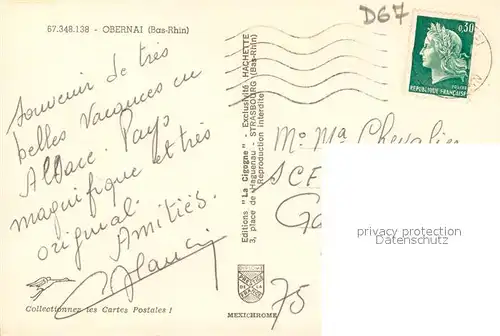 67.348.138 - OBERNAI (Bas-Rhin)
D67
0,30
REPUBLIQUE FRANÇAISE
Souvenir de très
belles Vacances en
Alsace. Pays
magnifique et très
original.
Amitiés.
Editions "La Cigogne" - Exclusivité HACHETTE
3, place de Haguenau - STRASBOURG (Bas-Rhin)
Reproduction interdite
Mr Ma Chevalier
SCE
privacy protection
Datenschutz
75
Collectionnez les Cartes Postales !
MEXICHROME